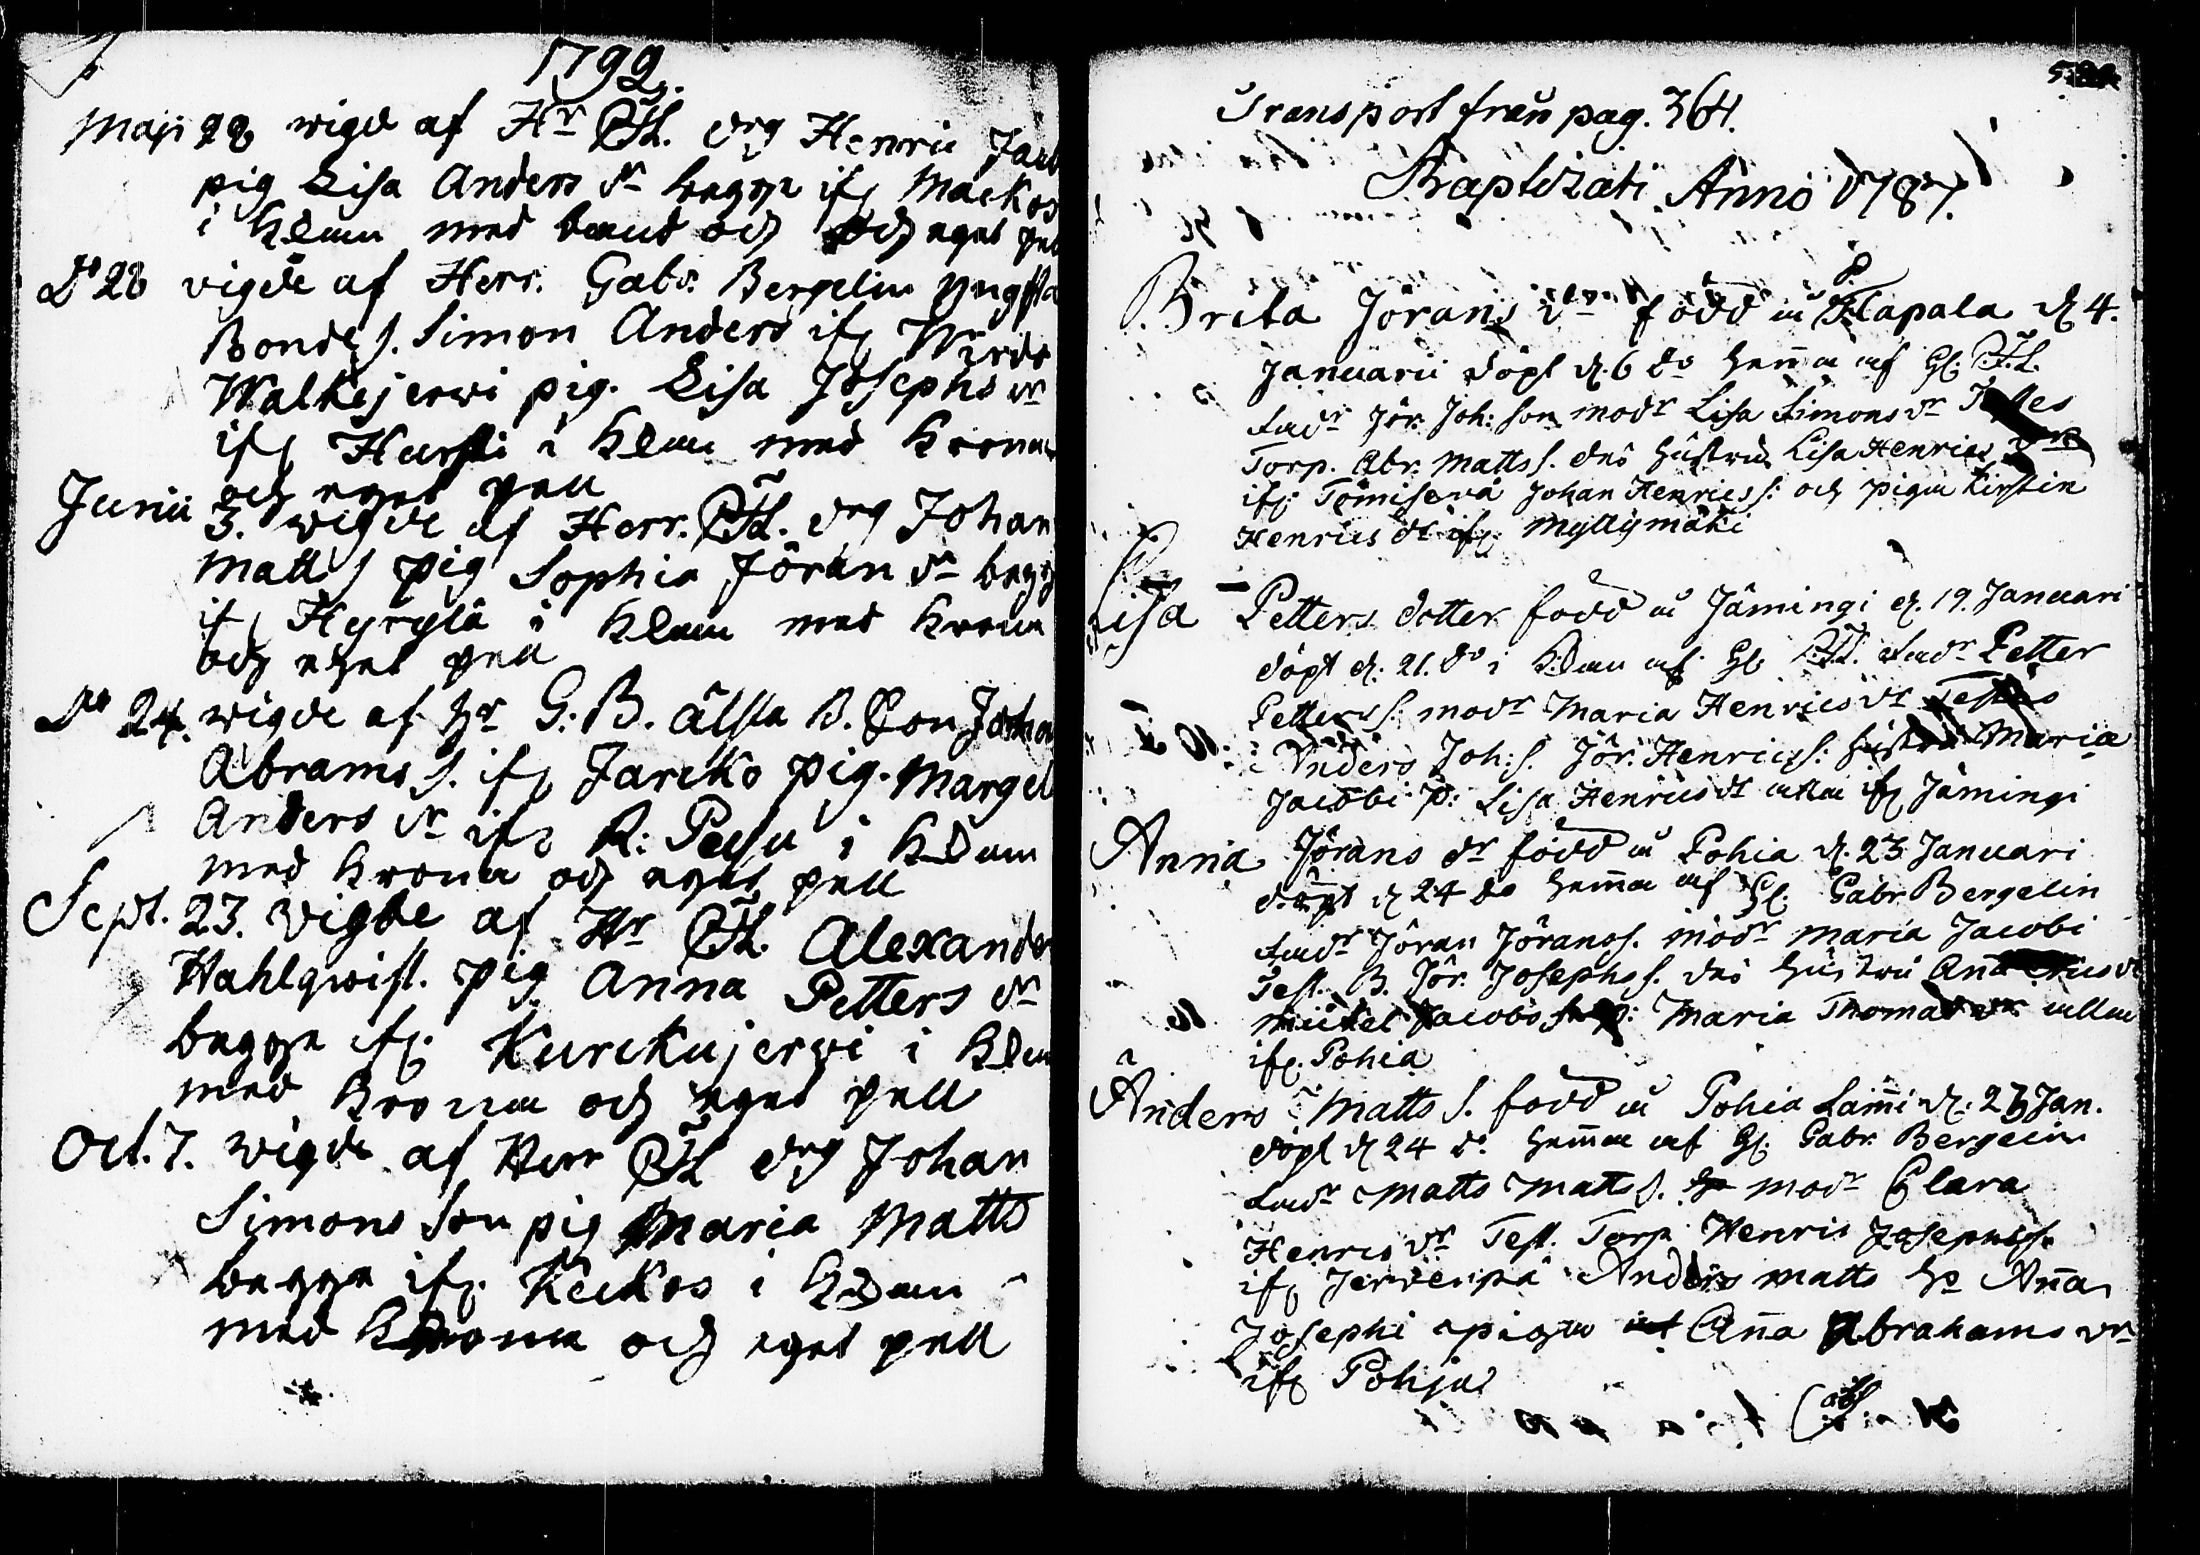 1792.
Maji 28 wigde af Hr PH. drg Henric Jac
pig Lisa Anders dr bägge ifr Mackos
i Kldm med och eget pell
Do 28 vigde af Herr. Gabr. Bergelin yngsta
Bonde s. Simon Anders ifr
Walkejerwi pig. Lisa Josephs dr
ifr Hursti i Kldm med Krona
och eget pell
Junii 3. wigde af Herr. PH. drg Johan
Matts s pig Sophia Jöran dr bägg
ifr Hyrylä i Kldm med Krona
och eget pell
Do 24. wigde af Hr G: B. älsta B. Son Joha
Abrams s. ifr Jarcko pig. Marget
Anders dr ifr R: i Kldm
med Krona och eget pell
Sept. 23. vigde af Hr PH. Alexander
Wahlqwist. pig Anna Petters dr
bägge ifr. Kurckujerwi i Kldm
med Krona och eget pell
Oct. 7. wigde af Herr PH drg Johan
Simons Son pig Maria Matts
bägge ifr. Keckos i Kldm
med Krona och eget pell
Transport från pag. 364.
Baptizati Anno 1787.
Brita Jörans dr född i Lapala d. 4.
Januarii döpt d. 6 do hema af H. PH.
fadr Jör. Joh: son modr Lisa Simons dr Testes
Torp. Abr. Matts s. des hustru Lisa Henrics
ifr. Tömisevä Johan Henrics s: och pigan Kirstin
Henrics dr ifr. Myllymäki
Lisa Petters dotter född i Jämingi d. 19. Januari
döpt d: 21. do i Kldm af H. PH. fadr Petter
Petters s: modr Maria Henrics dr Testes
Anders Joh: s. Jör. Henrics s: hustru Maria
Jacobi P: Lisa Henrics dr alla ifr Jämingi
Anna Jörans dr född i Pohia d. 23 Januari
döpt d 24 do hema af H. Gabr. Bergelin
fadr Jöran Jörans s. modr Maria Jacobi
Test. B. Jör. Josephs s. des hustru
Michel Jacobs s. P: Maria Thomas dr alla
ifr. Pohia
Anders Matts s. född i Pohia Lami d: 23 Jan.
döpt d 24 do hema af H. Gabr. Bergelin
fadr Matts Matts s. modr Clara
Henrics dr Test. Torp. Henric Josephs s.
ifr Jervenpä Anders Matts Ho Ana
Josephi pigan Ana Abrahams dr
ifr Pohja